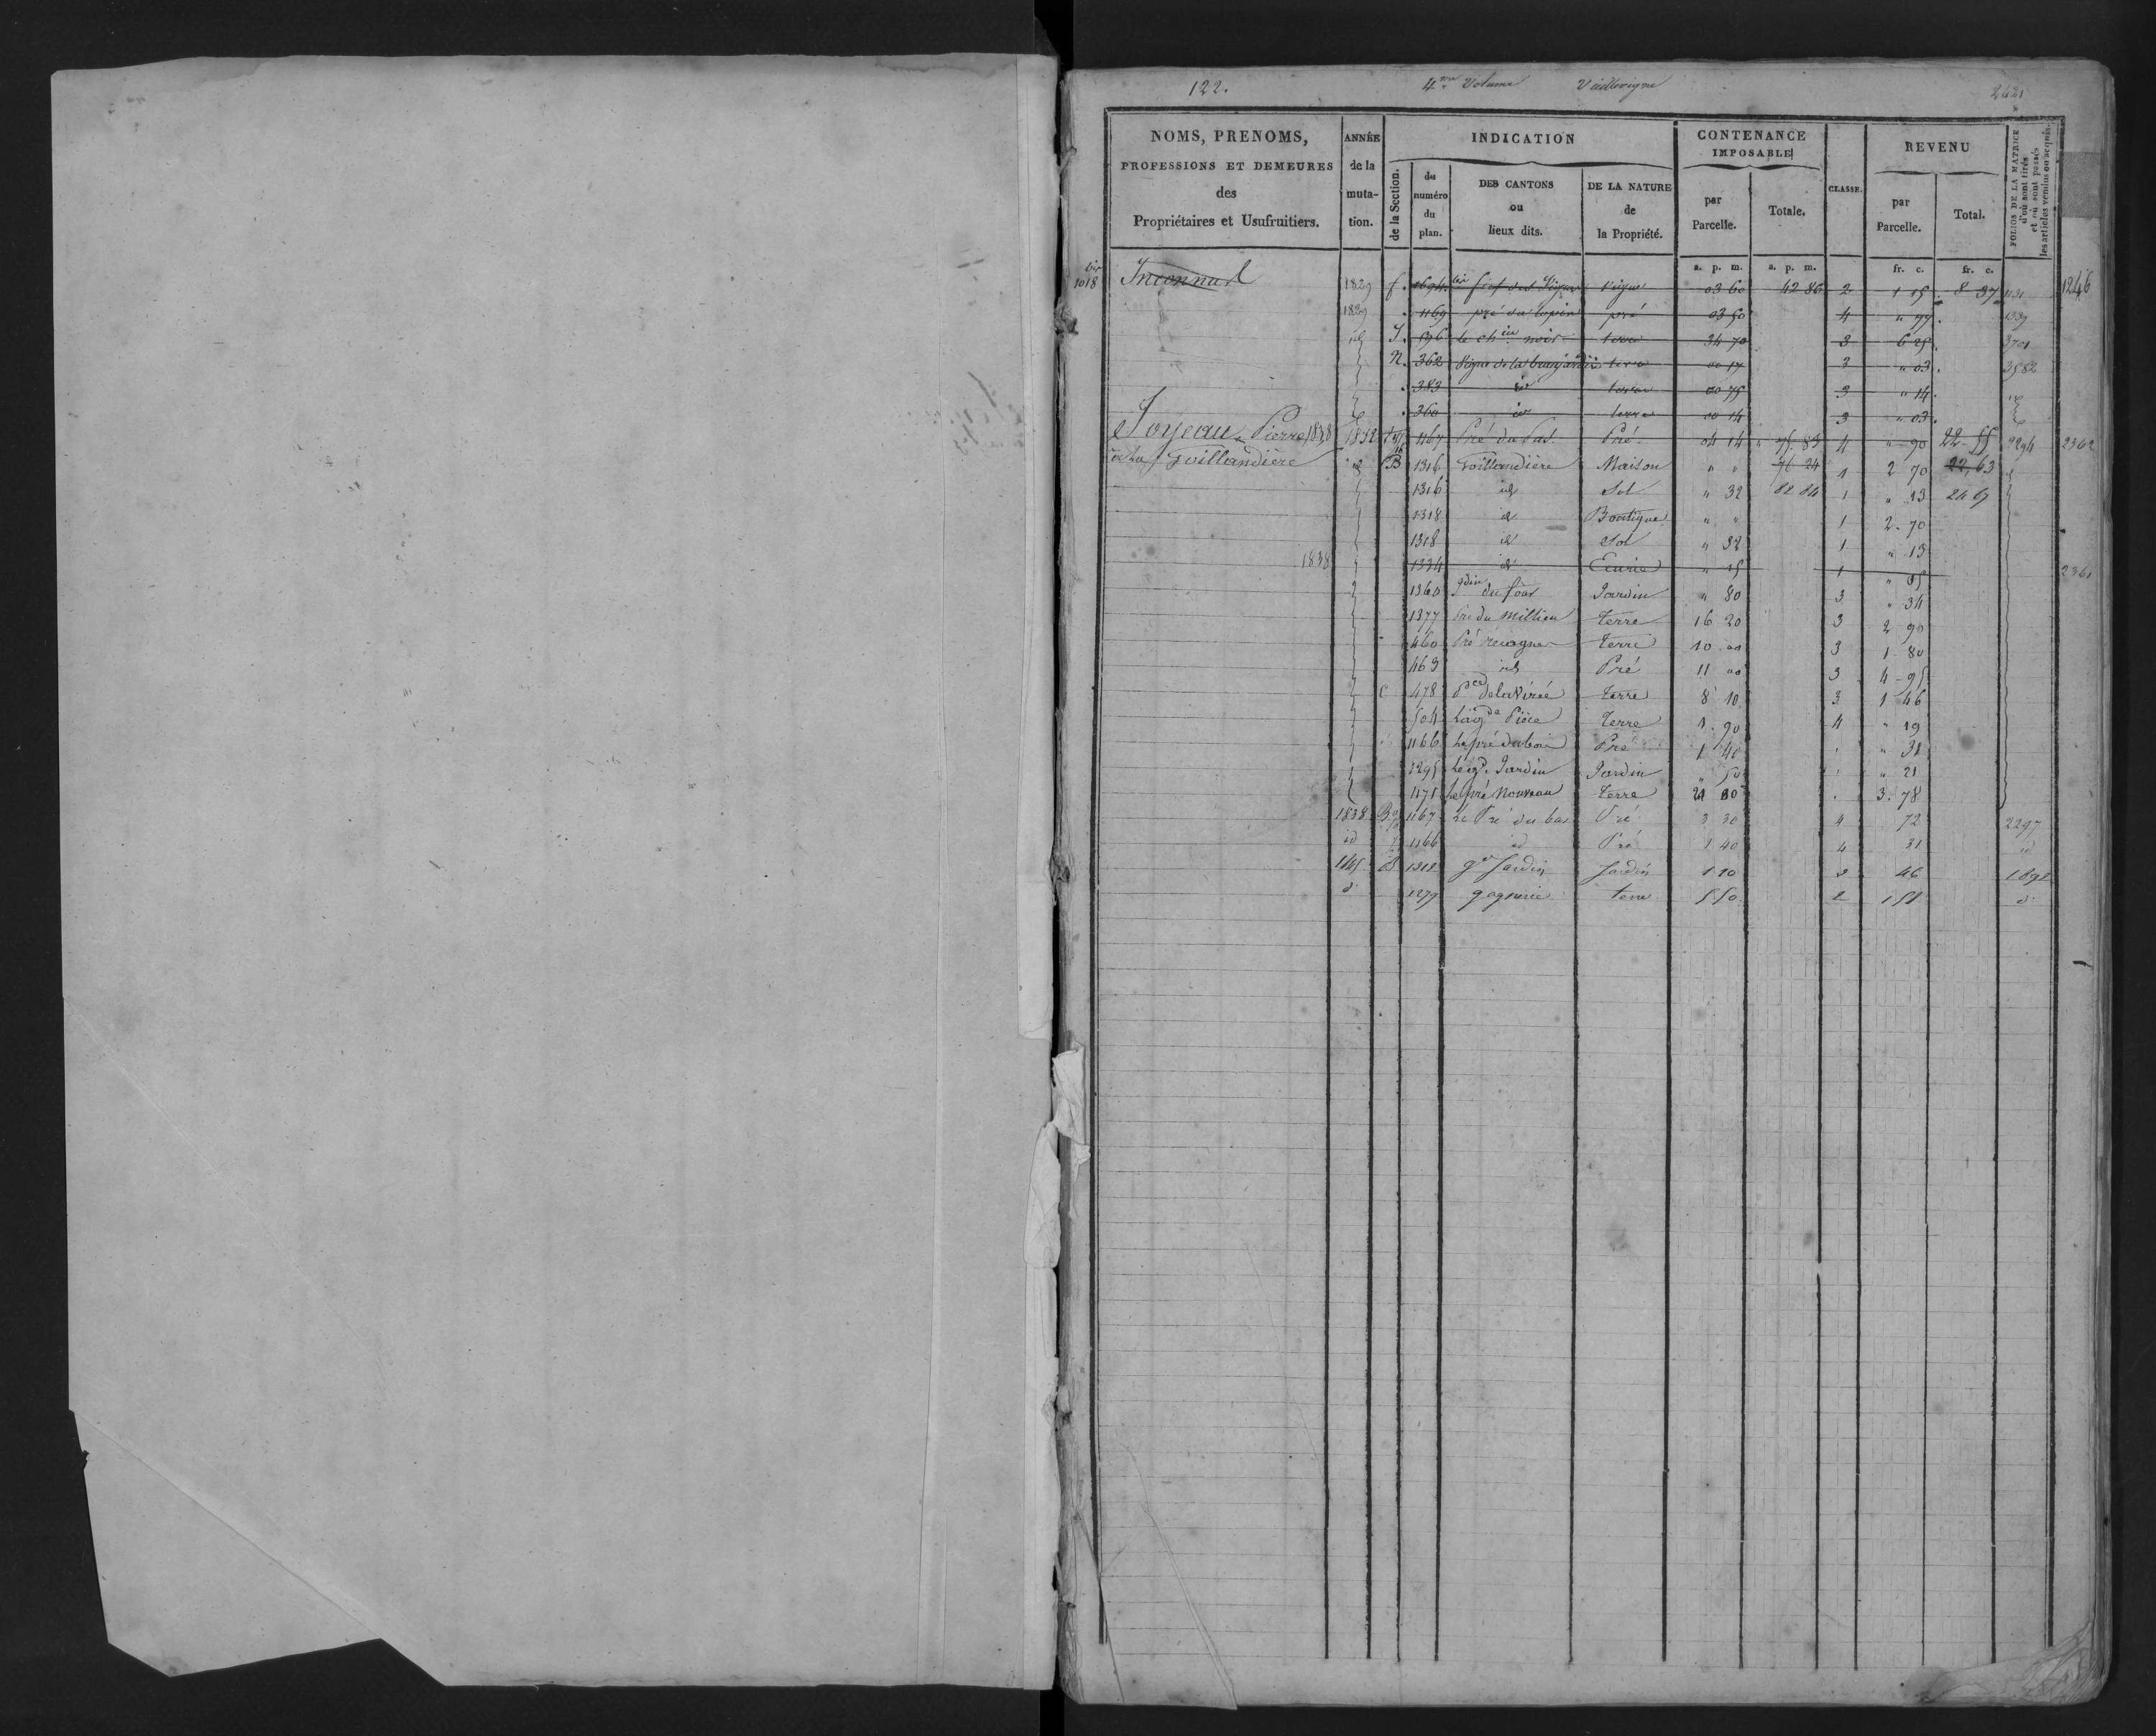 122. 4.me Volume Vieillevigne 2421
NOMS, PRENOMS, PROFESSIONS ET DEMEURES des Propriétaires et Usufruitiers.
ANNÉE de la muta- tion.
INDICATION
de la Section.
du numéro du plan.
DES CANTONS ou lieux dits.
DE LA NATURE de la Propriété.
CONTENANCE IMPOSABLE
par Parcelle.
Totale.
CLASSE.
REVENU
par Parcelle.
Total.
FOLIOS DE LA MATRICE d'où sont tirés et où sont passés les articles vendus ou acquis.
a. p. m. a. p. m. fr. c. fr. c.
bis 1018 Inconnu 1829 f. 1694 bis fief des Vignes Vigne 03 60 42 86 2 1 15 8 37 1131 1246
1829 1169 pré du lopin pré 03 50 4 " 77 1339
id J. 596 le chin noir terre 34 70 3 6 25 3701
N. 362 Vigne de la terre 00 17 3 " 03 3582
383 id terre 00 75 3 " 14
360 id terre 00 14 3 " 03
Joyeau Pierre 1838 1832 1167 Pré du Bas Pré 04 14 75 83 4 " 90 22 55 2294 2362
de la Goillandière id B 1316 Goillandière Maison " " 76 24 1 2 70 22,63
1316 id Sol " 32 82 84 1 " 13 24 67
1318 id Boutique " " 1 2 70
1318 id Sol " 32 1 " 13
1838 1334 id Ecurie " 15 1 " 05 2361
1360 Jdin du four Jardin " 80 3 " 34
1377 Pre du Millieu Terre 16 20 3 2 90
460 Terre 10 00 3 1 80
463 id Pré 11 00 3 4 95
C 478 Pce de la Virée Terre 8 10 3 1 46
504 La gde Pièce Terre 1 90 4 " 19
1166 Le pré du bois Pré 1 40 " 31
1295 Le gd Jardin Jardin " 50 " 21
1175 Le pré Nouveau Terre 21 00 3 78
1838 B 1167 Le Pré du bas Pré 3 30 4 72 2297
id 1166 id Pré 1 40 4 31 id
1845 B 1318 gd Jardin Jardin 1 10 2 46 1892
d° 1279 gagnerie terre 5 50 2 1 51 d°